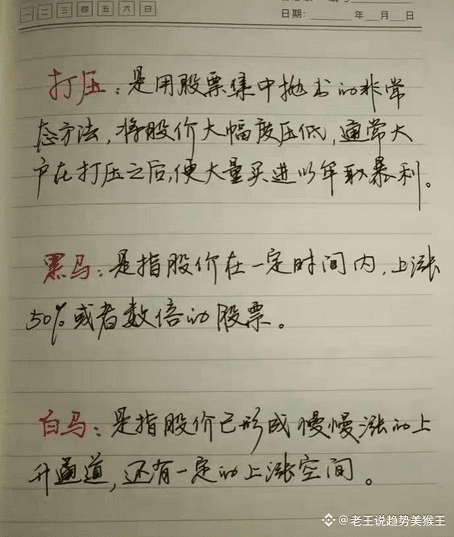 一 二 三 四 五 六 日
日期： 年 月 日
打压：是用股票集中抛出的非常
态方法，将股价大幅度压低，通常大
户在打压之后，便大量买进以牟取暴利。
黑马：是指股价在一定时间内，上涨
50%或者数倍的股票。
白马：是指股价已形成慢慢涨的上
升通道，还有一定的上涨空间。
@老王说趋势美猴王